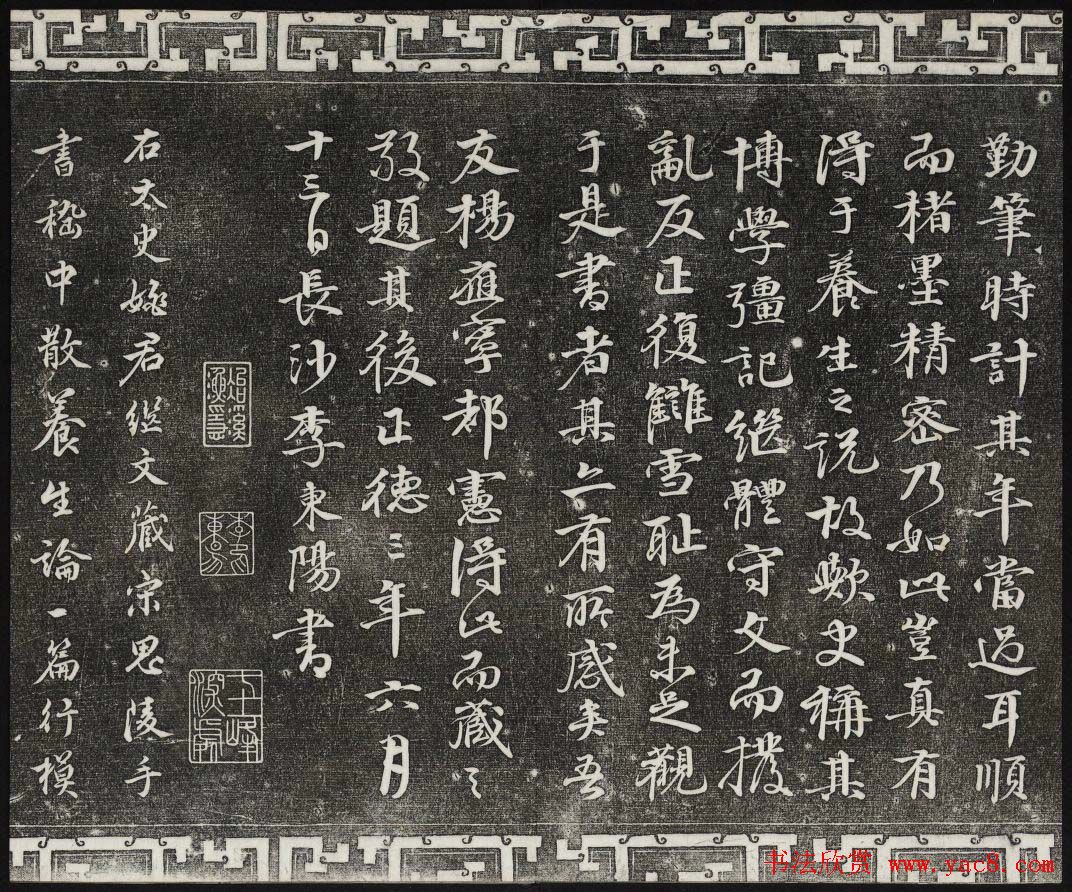 勤筆時計其年當過耳順
而楮墨精密乃如此豈真有
得于養生之説故歟史稱其
博學彊記繼體守文而撥
亂反正復讎雪耻為未足觀
于是書者其亦有所感矣吾
友楊應寧都憲得此而藏之
敬題其後正德三年六月
十三日長沙李東陽書
右太史姚君繼文藏宋思陵手
書嵇中散養生論一篇行模
书法欣赏 www.yac8.com